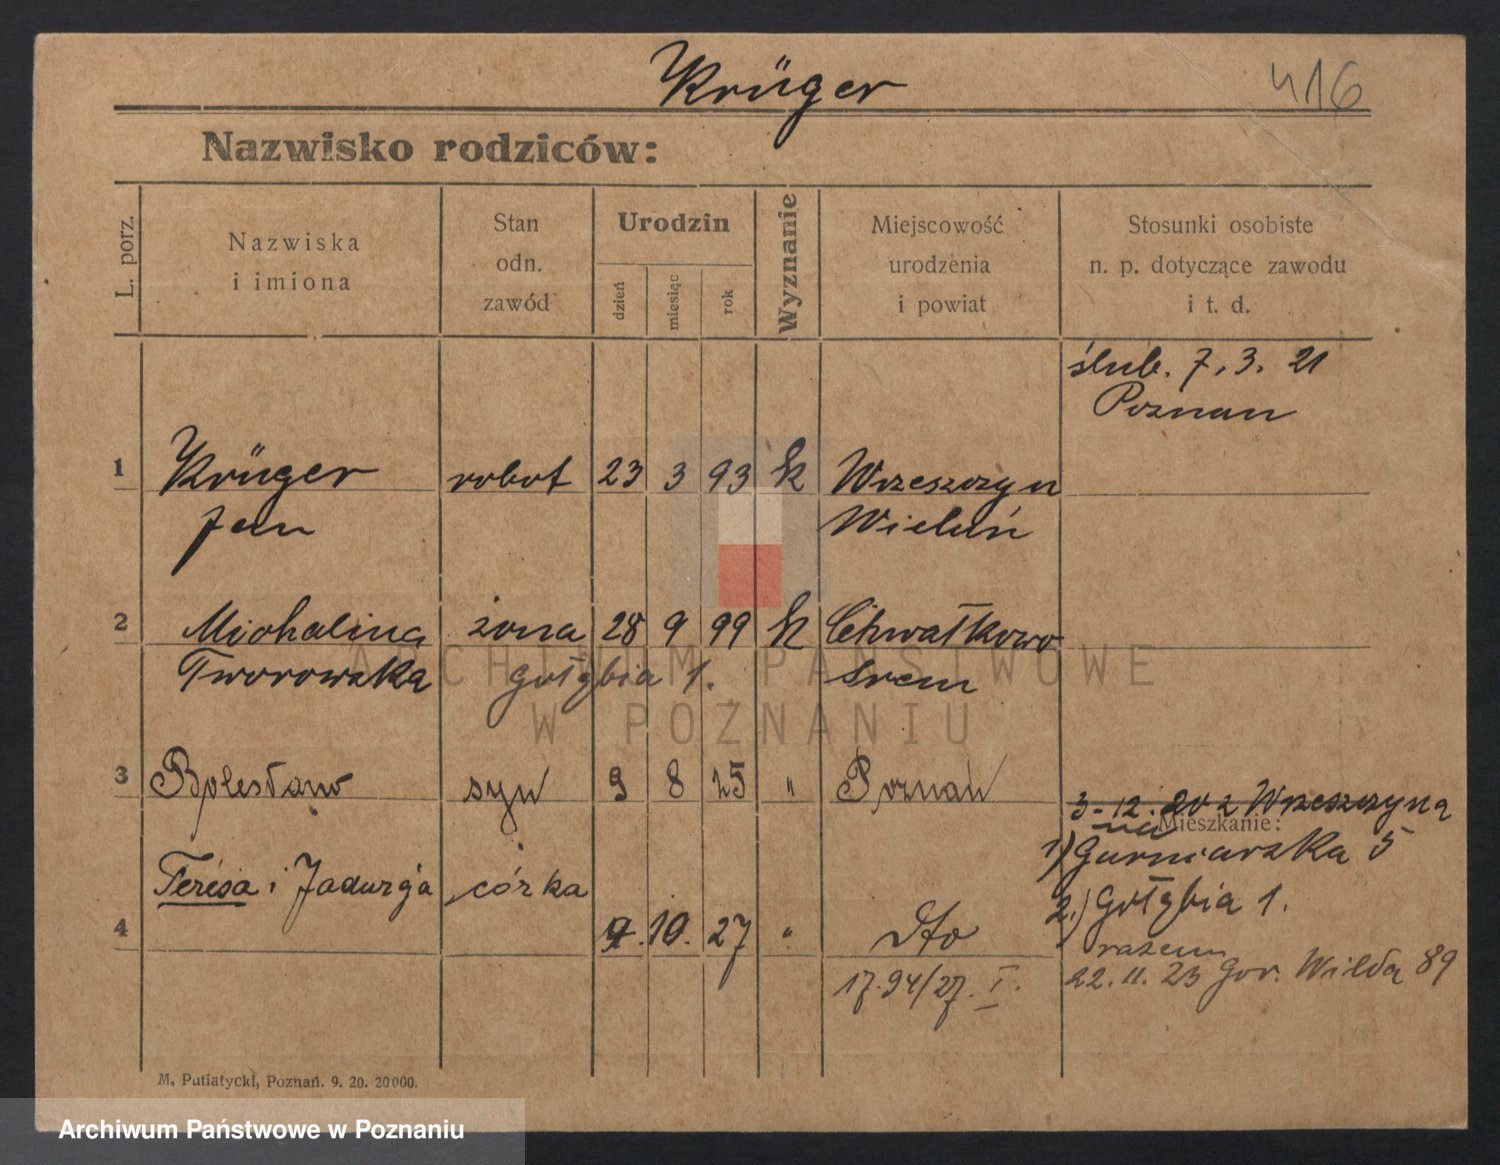 Krüger
416
Nazwisko rodziców:
L. porz.
Nazwiska
i imiona
Stan
odn.
zawód
Urodzin
dzień
miesiąc
rok
Wyznanie
Miejscowość
urodzenia
i powiat
Stosunki osobiste
n. p. dotyczące zawodu
i t. d.
ślub. 7. 3. 21
Poznan
1 Krüger robot 23 3 93 k Wrzeszczyn
Jan Wieluń
2 Michalina żona 28 9 99 k Chwałkowo
Tworowska Gołębia 1. Srem
3 Bolesław syn 9 8 25 " Poznań
3-12. 20 z Wrzeszczyna
na
Mieszkanie:
1) Garncarska 5
Teresa i Jadwiga córka
2.) Gołębia 1.
4 9. 10. 27 " dto
razem
22. 11. 23 Gór. Wilda 89
17.94/27. I.
M. Putiatycki, Poznań. 9. 20. 20000.
ARCHIWUM PAŃSTWOWE
W POZNANIU
Archiwum Państwowe w Poznaniu